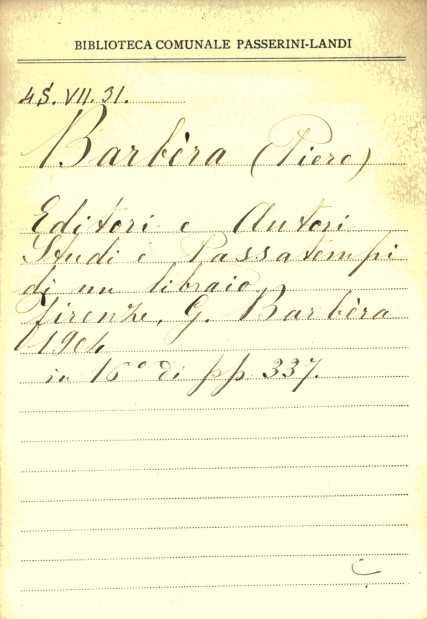 BIBLIOTECA COMUNALE PASSERINI-LANDI
4S. VII. 31.
Barbèra (Piero)
Editori e Autori
Studi e Passatempi
di un libraio
Firenze, G. Barbèra
1904
in 16° di pp. 337.